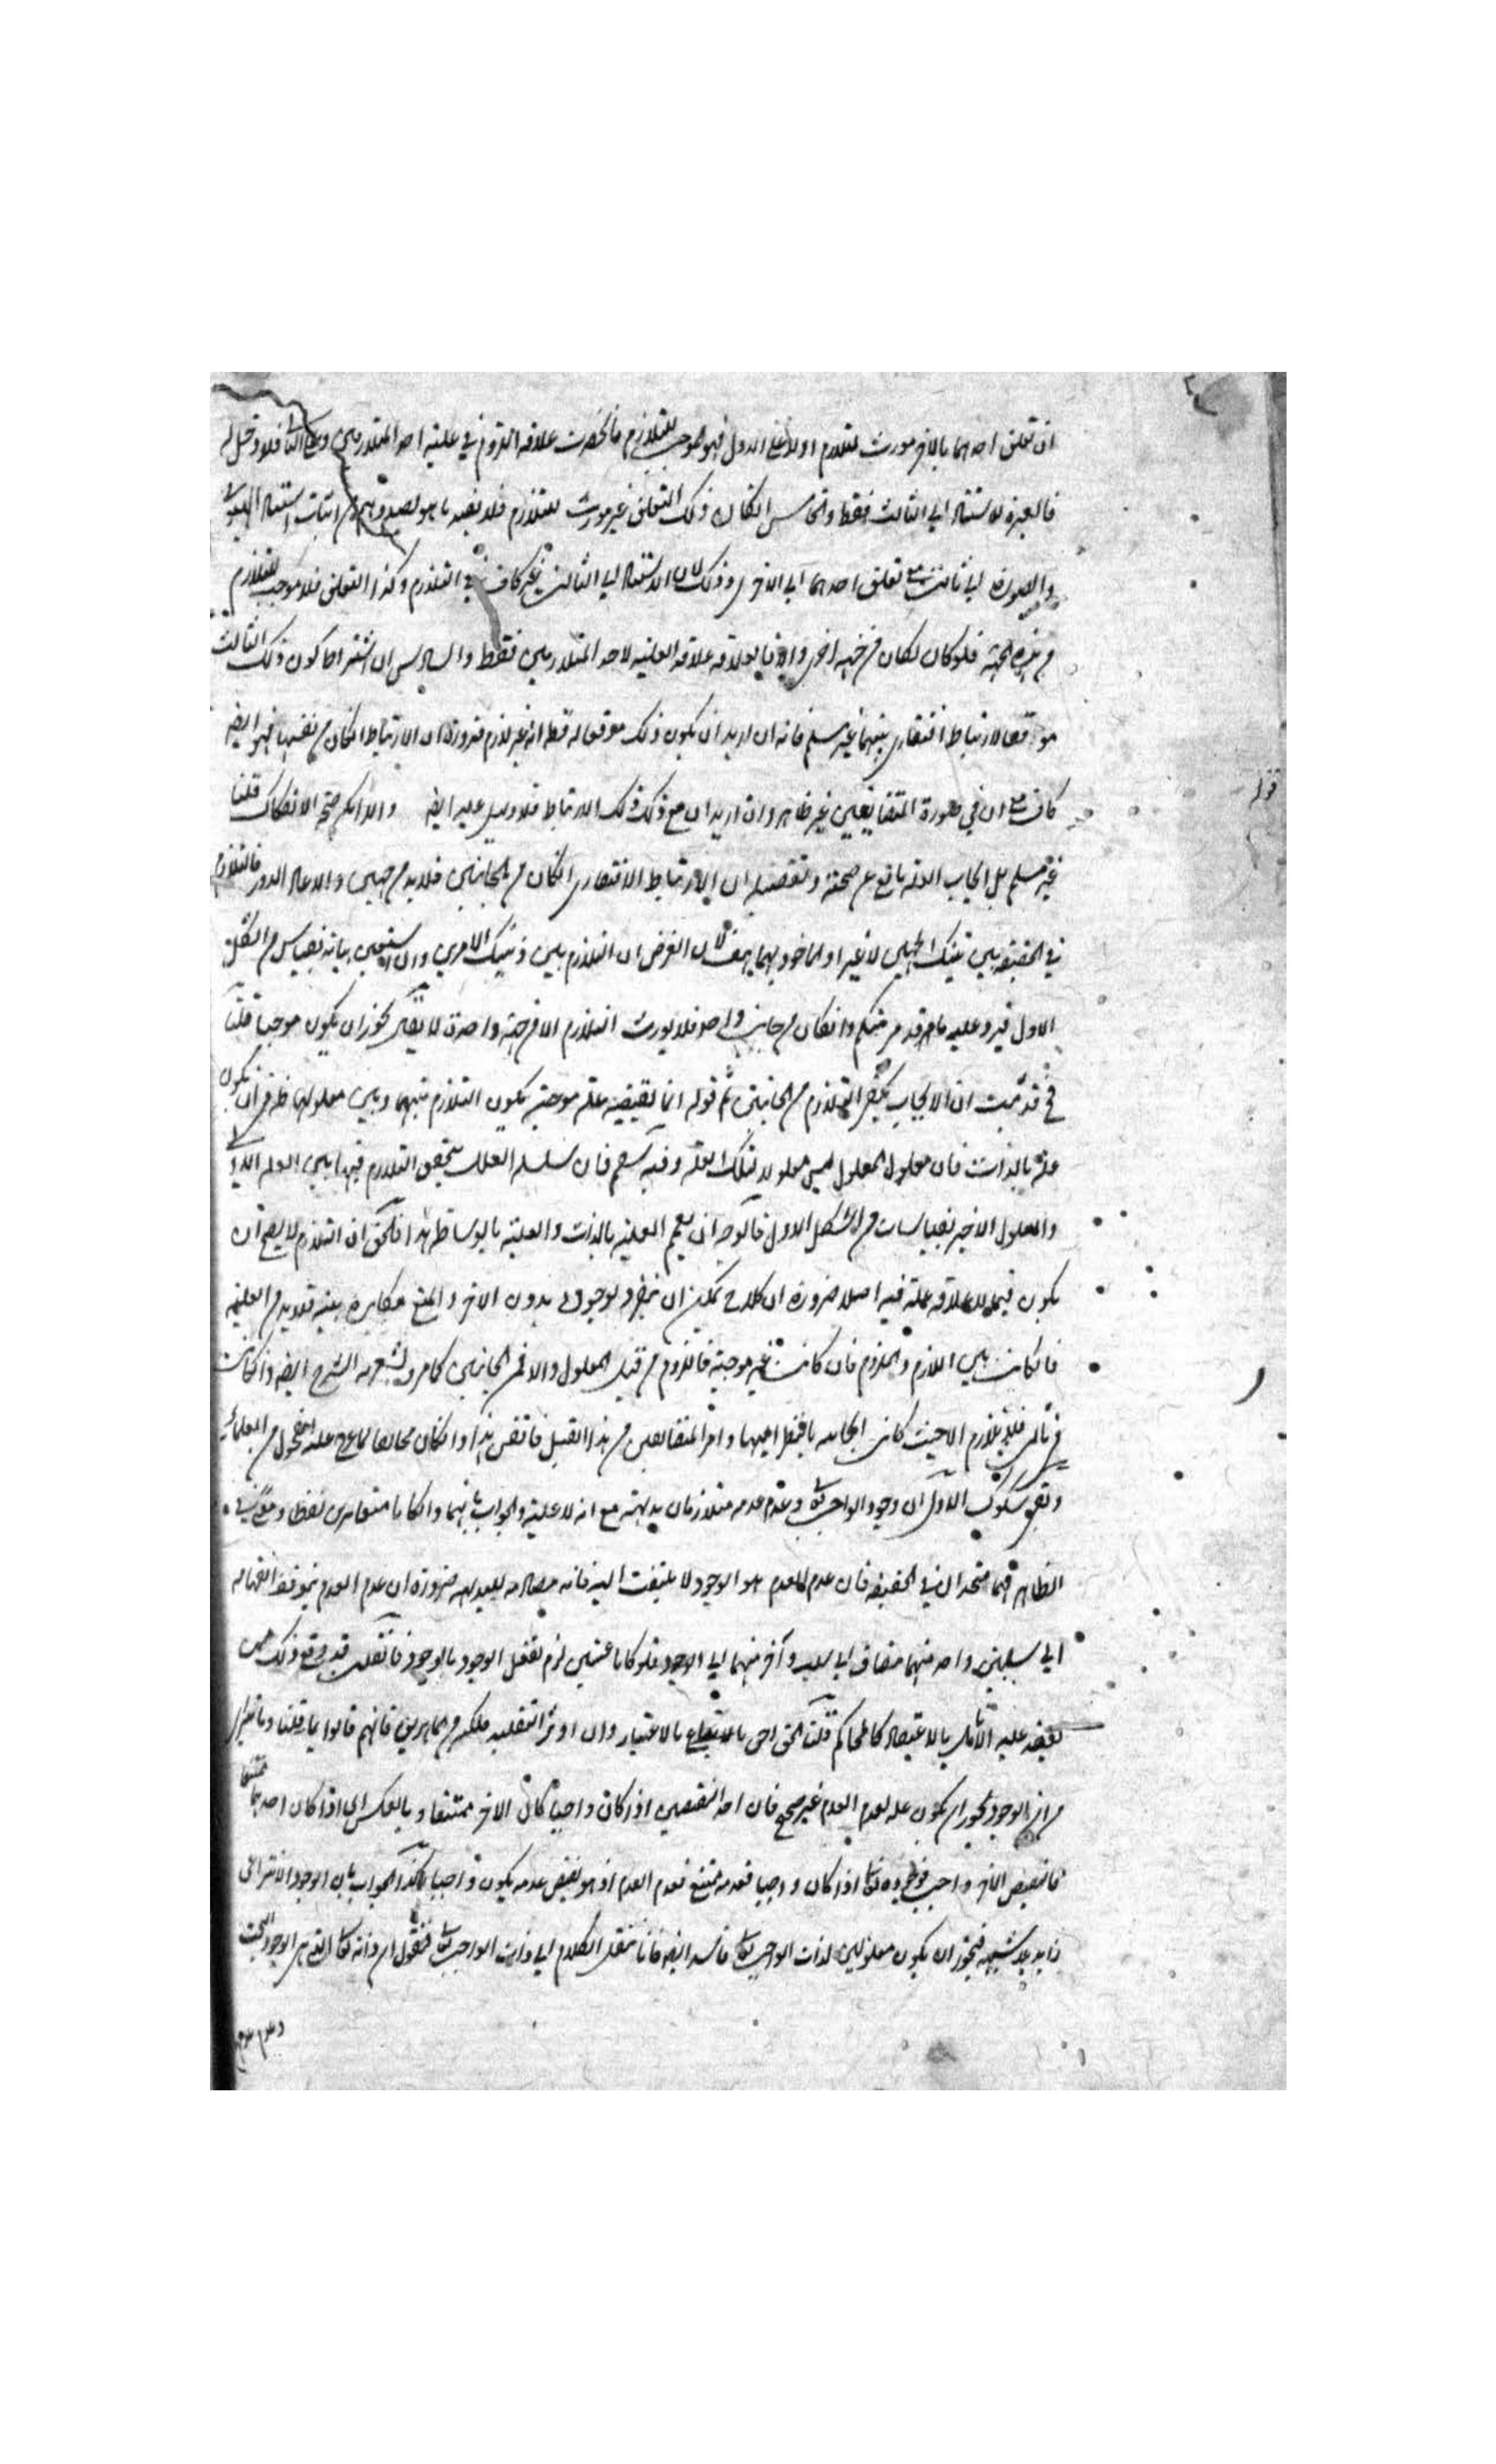 ان تعلق احدهما بالاخر مورث للتلازم اولا فعلى الاول فهو موجب للتلازم فانحصرت علاقة اللزوم في علية احد المتلازمين وعلى الثاني فلا دخل له
فالعبرة للاستناد الى الثالث فقط والخامس ان كان ذلك التعلق غير مورث للتلازم فلا نعنيه ما هو بصدده من اثبات استناد الهيولى
والصورة الى ثالث مع تعلق احدهما الى الاخرى وذلك لان الاستناد الى الثالث غير كاف في التلازم وكذا التعلق فلا موجب للتلازم
من هذه الجهة فلو كان لكان من جهة اخرى علاقة العلية لاحد المتلازمين فقط والسادس ان اشتراط كون ذلك الثالث
موقعا لارتباط افتقاري بينهما غير مسلم فانه ان اريد ان يكون ذلك موقعا له قط انه غير لازم ضرورة ان الارتباط ان كان من نفسها فهو ايضا
كاف مع ان في صورة المتضايفين غير ظاهر وان اريد ان مع ذلك ذلك الارتباط فلا دليل عليه ايضا والا امكن صحة الانفكاك قلنا
غير مسلم بل ايجاب العلة مانع عن صحته وتفصيله ان الارتباط الافتقاري ان كان من الجانبين فلا بد من جهتين والا عاد الدور فالتلازم
في الحقيقة بين تينك الجهتين لا غير او الماخوذ بهما هف لان الفرض ان التلازم بين ذينك الامرين وان استعين ببيانه بقياس من الشكل
الاول فيرد عليه ما قد مر منكم وان كان من جانب واحد فلا يورث التلازم الا من جهة واحدة لا يقال يجوز ان يكون موجبا قلنا
فح قد ثبت ان الايجاب يكفي التلازم من الجانبين ثم قوله انما يقتضيه علة موجبة يكون التلازم بينهما وبين معلولها ان يكون
علة بالذات فان معلول المعلول ليس معلولا لتلك العلة وفيه سقم فان سلسلة العلل يتحقق التلازم فيها بين العلة الاولى
والمعلول الاخير بقياسات من الشكل الاول فالوجه ان يعمم العلية بالذات والعلية بالوساطة هذا فالحق ان التلازم لا يصح ان
يكون فيما لا علاقة علة فيه اصلا ضرورة ان كلا ح يمكن ان ينفرد بوجوده بدون الاخر والمنع مكابرة بينة فلا بد من العلية
فان كانت بين اللازم والملزوم فان كانت غير موجبة فاللزوم من قبل المعلول والا فمن الجانبين كما مر وليشعر به الشرح ايضا وان كانت
من ثالث فلا تلازم الا حيث كانت ايجابه باقتضاء اليهما وامر المتضايفين من هذا القبيل فاتقن هذا وان كان مخالفا لما عليه الفحول من العلماء
وبقي شكوك الاول ان وجود الواجب تعالى وعدم عدمه متلازمان بديهة مع انه لا علية والجواب بانهما وان كانا متغايرين لفظا ومعنى في
الظاهر فهما متحدان في الحقيقة فان عدم العدم هو الوجود لا يلتفت اليه فانه مصادمة للبديهة ضرورة ان عدم العدم يتوقف
الى سلبين واحد منهما مضاف الى سلب وآخر منهما الى الوجود فلو كانا عينين لزم تعقل الوجود بالوجود فان قلت قد وقع ذلك ممن
يفيض عليه بالاعتماد كالمحاكم قلت الحق احق بالاتباع بالاعتبار وان اوثر التقليد من الماهرين فانهم قالوا بما قلنا وما يقال
من ان الوجود يجوز ان يكون علة لعدم العدم غير صحيح فان احد النقيضين اذا كان واجبا كان الاخر ممتنعا وبالعكس اي اذا كان احدهما ممتنعا
فالنقيض الاخر واجب فوجوده تعالى اذا كان واجبا فعدمه ممتنع فعدم العدم اذ هو نقيض عدمه يكون واجبا بان الوجود الانتزاعي
زايد بلا شبهة فيجوز ان يكون معلولين لذات الواجب تعالى فاسد ايضا فانا ننقل الكلام الى ذات الواجب تعالى فنقول ان ذاته تعالى التي هي الوجود البحت
وعدم عدمها